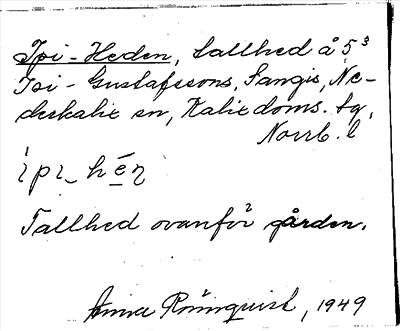 Ipi-Heden, tallhed å 5³
Ipi-Gustafssons, Sangis, Ne-
derkalix sn, Kalix doms. tg,
Norrb. l
ìpi‿hén
Tallhed ovanför gården.
Anna Rönnquist, 1949